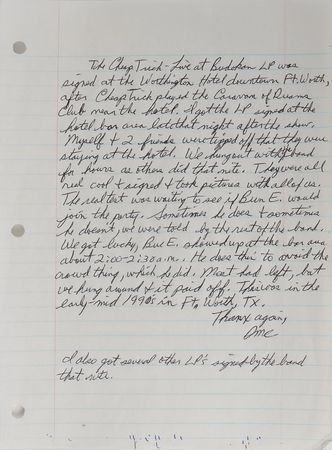 The Cheap Trick - Live at Budokan LP was
signed at the Worthington Hotel downtown Ft. Worth,
after Cheap Trick played the Caravan of Dreams
Club near the hotel. I got the LP signed at the
hotel bar area late that night after the show.
Myself + 2 friends were tipped off that they were
staying at the hotel. We hung out with band
for hours as others did that nite. They were all
real cool + signed + took pictures with all of us.
The real test was waiting to see if Bun E. would
join the party. Sometimes he does + sometimes
he doesn't, we were told by the rest of the band.
We got lucky, Bun E. showed up at the bar area
about 2:00-2:30 a.m.. He does this to avoid the
crowd thing, which he did. Most had left, but
we hung around + it paid off. This was in the
early-mid 1990's in Ft. Worth, TX.
Thanx again,
I also got several other LP's signed by the band
that nite.